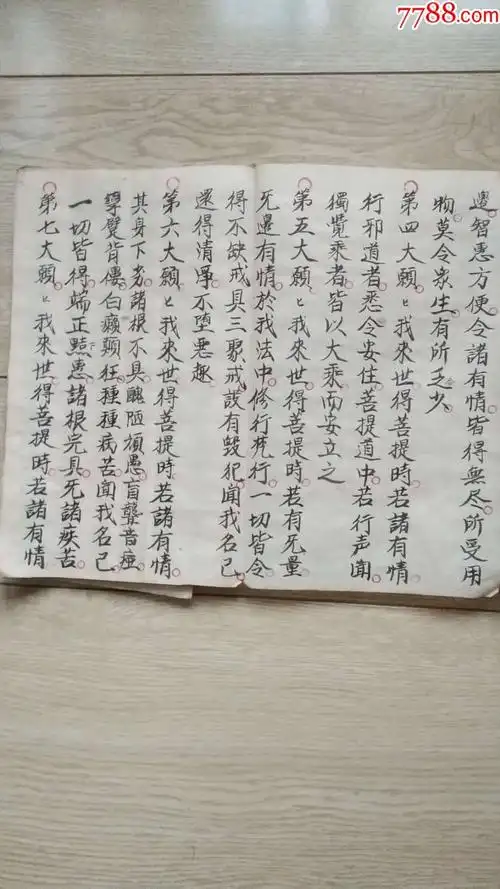 7788.com
邊智惠方便令諸有情皆得無尽所受用
物莫令衆生有所乏少
第四大願々我來世得菩提時若諸有情
行邪道者悉令安住菩提道中若行声聞
獨覺乘者皆以大乘而安立之
第五大願々我來世得菩提時若有旡量
旡邉有情於我法中修行梵行一切皆令
得不缺戒具三聚戒設有毀犯聞我名已
還得清淨不墮惡趣
第六大願々我來世得菩提時若諸有情
其身下劣諸根不具醜陋頑愚盲聾音瘂
攣躄背僂白癩顛狂種種病苦聞我名已
一切皆得端正黠惠諸根完具旡諸疾苦
第七大願々我來世得菩提時若諸有情